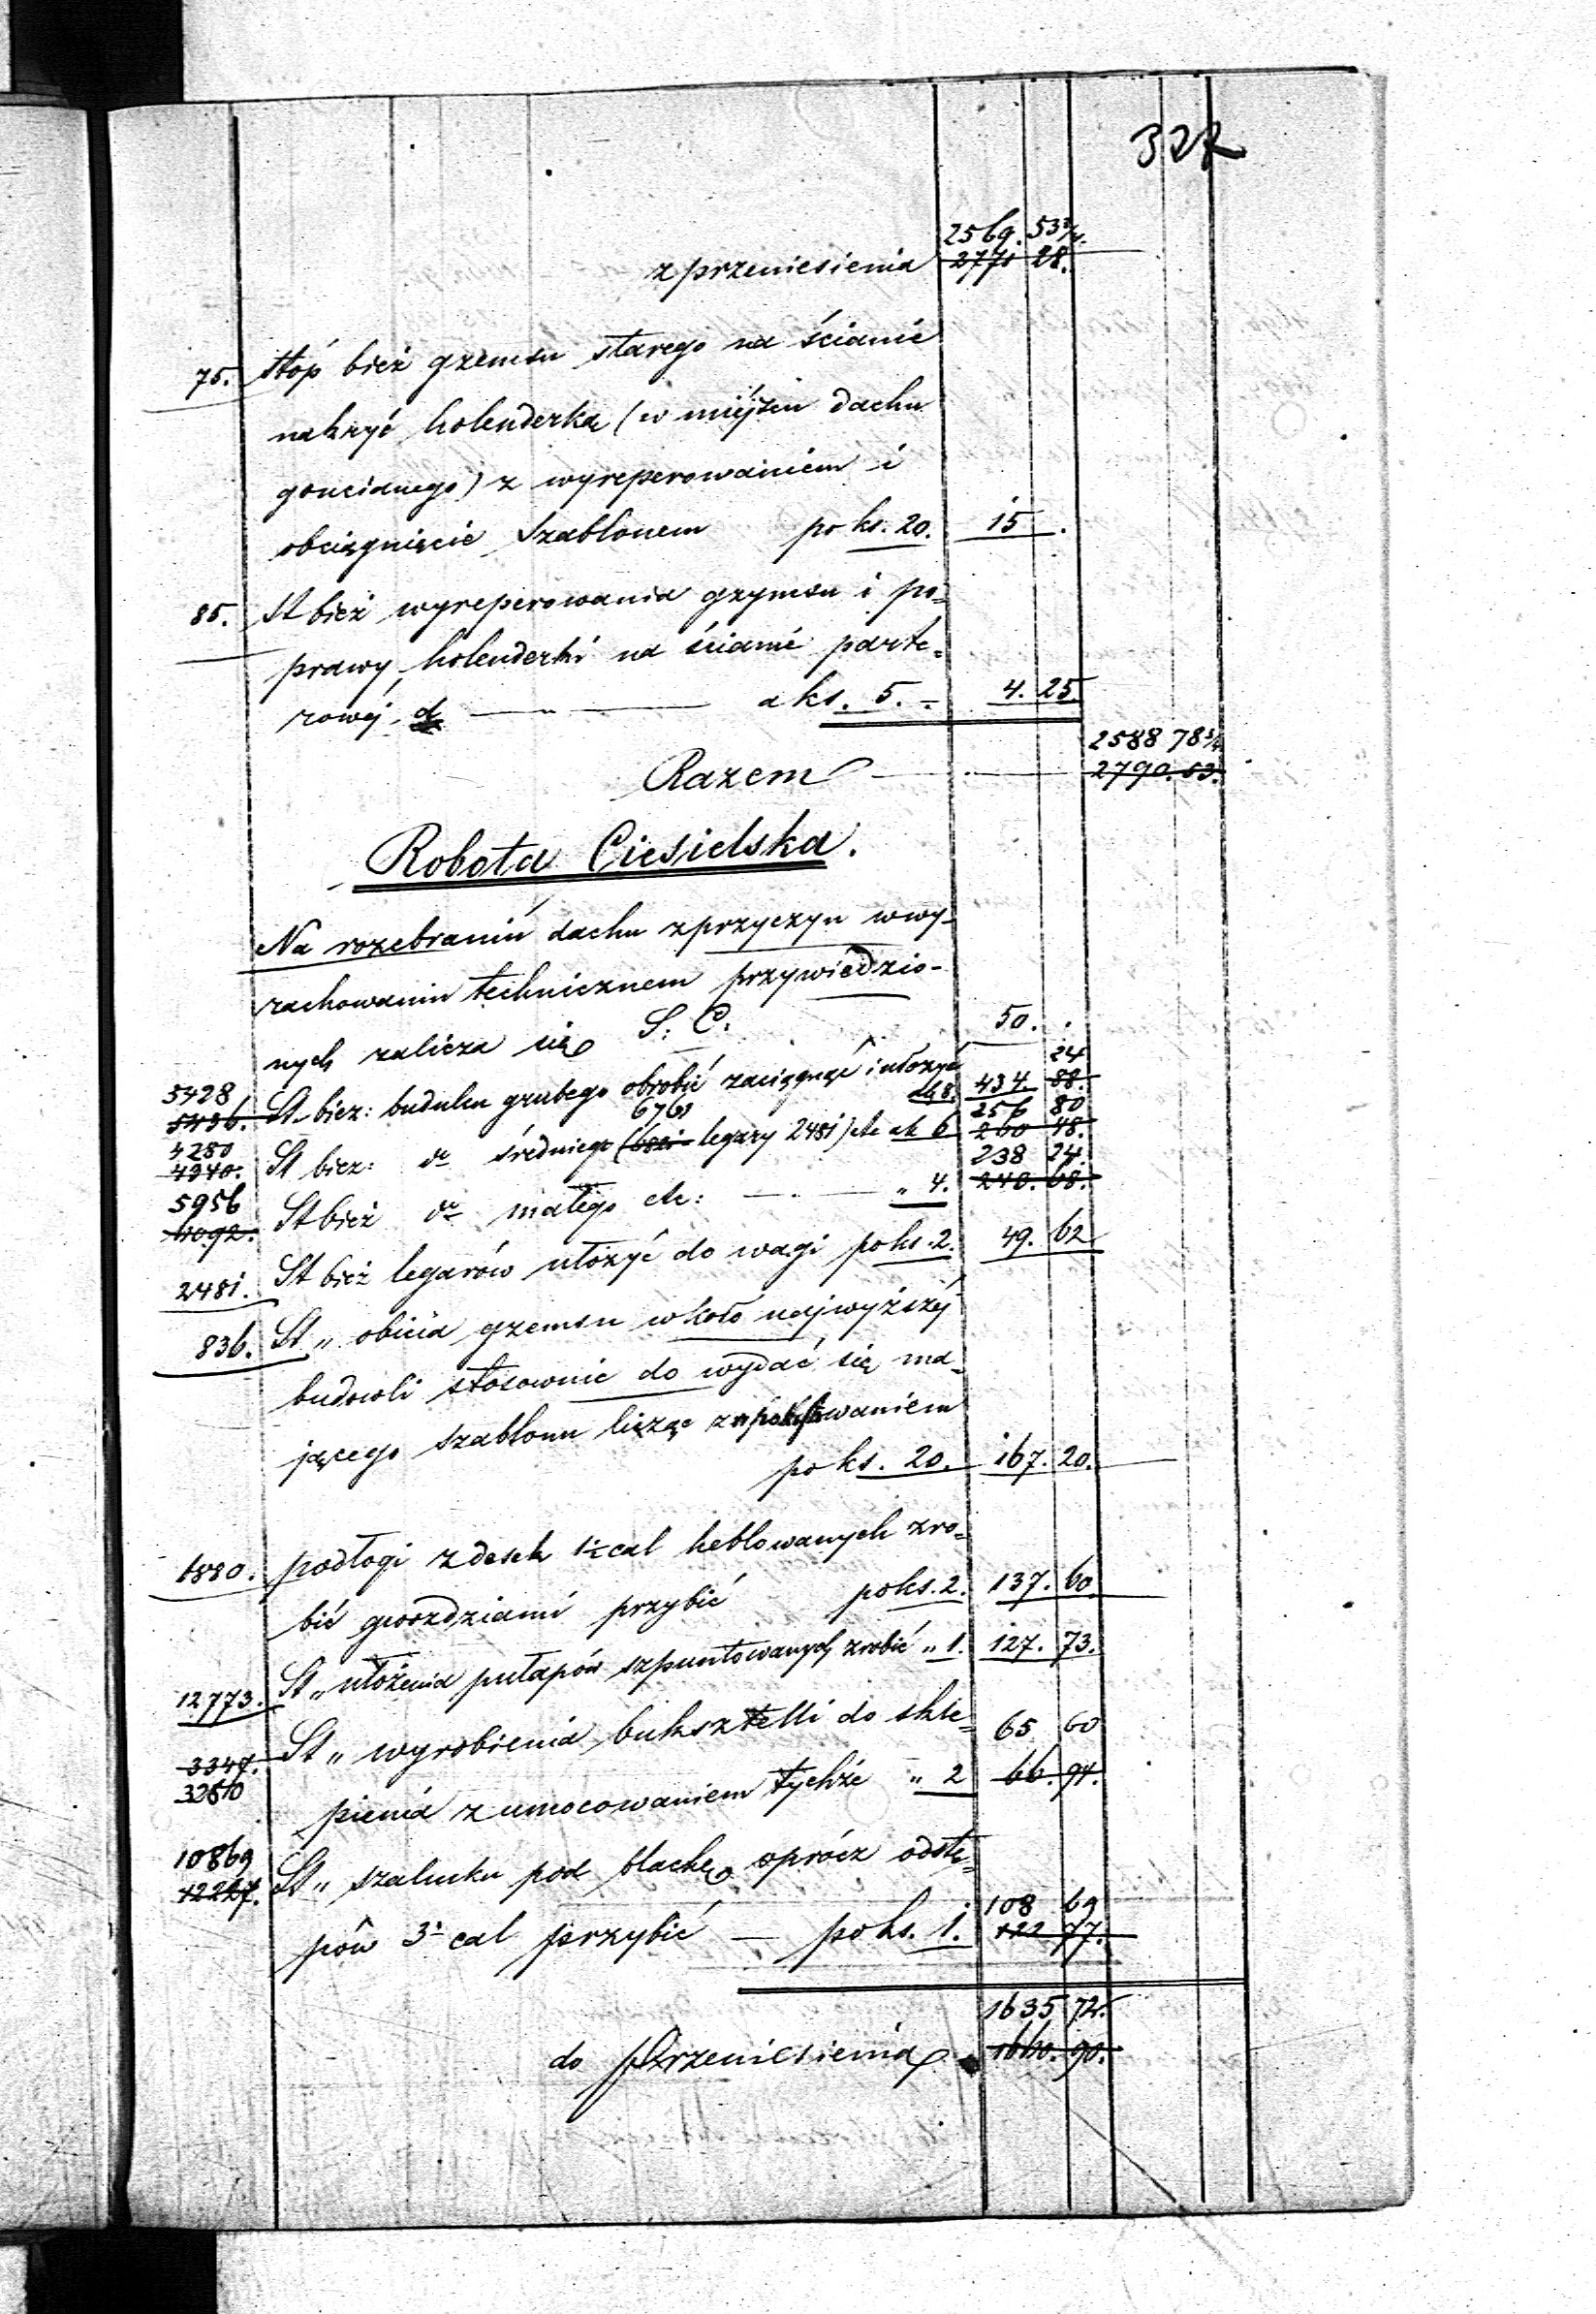 327
2569. 53 3/4.
z przeniesienia 2771 28.
75. stóp bież gzemsu starego na ścianie
nakryć holenderką (w miéjscu dachu
goncianego) z wyreperowaniem i
obciągnięcie szablonem po ks. 20. 15 .
85. St bież wyreperowania gzymsu i po=
prawy holenderki na ścianie parte=
rowéj a ks. 5. 4. 25.
2588 78 3/4
Razem 2790. 53.
Robota Ciesielska.
Na rozebraniu dachu z przyczyn w wy-
rachowaniu technicznem przywiedzio-
nych zalicza się S: C: 50. .
5428 24
5436. St. bież: budulcu grubego obrobić zaciągnąć i ułożyć a 8. 434. 88.
4280 6761 256 80
4340. St bież: do średniego ( legary 2481) etc a 6 260 48.
5956 238 24.
St bież do małego etc: „ 4. 240. 68.
2481. St bież legarów ułożyć do wagi po ks. 2. 49. 62
836. St „ obicia gzemsu w koło najwyższéj
budowli stosownie do wydać się ma=
jącego szablonu licząc
po ks. 20. 167. 20.
podłogi z desek 1½ cal heblowanych zro=
bić gwoździami przybić po ks. 2. 137. 60.
12773. St „ ułożenia pułapów szpuntowanych zrobić „ 1. 127. 73.
3347. St „ wyrobienia buksztelli do skle= 65 60
pienia z umocowaniem tychże „ 2 66. 94.
10869
St „ szalunku pod blachę oprócz odstę=
108 69
pów 3 cal przybić — po ks. 1. 122 77.
1635 72.
do przeniesienia 1660. 90.